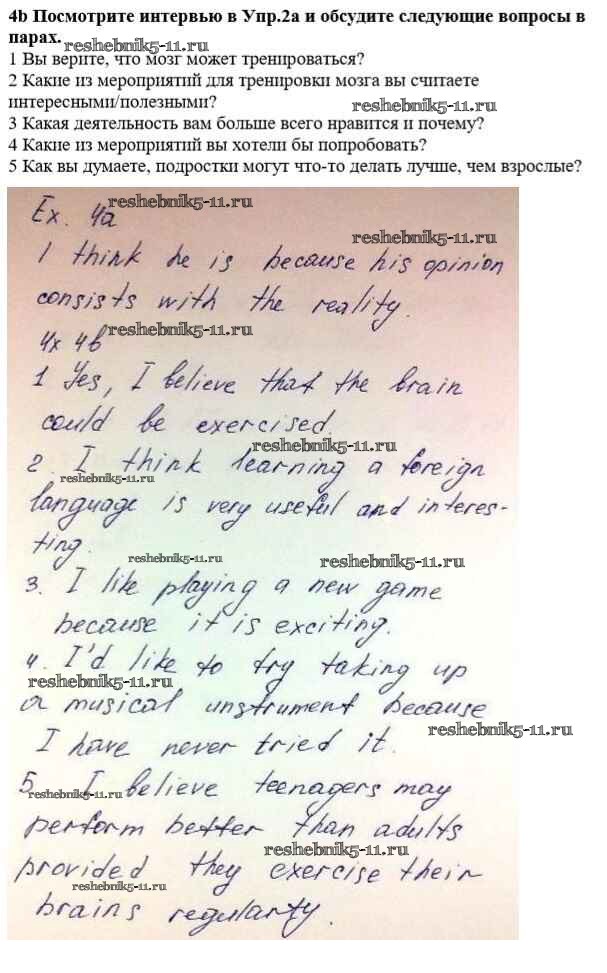 4b Посмотрите интервью в Упр.2a и обсудите следующие вопросы в
парах.
1 Вы верите, что мозг может тренироваться?
2 Какие из мероприятий для тренировки мозга вы считаете
интересными/полезными?
3 Какая деятельность вам больше всего нравится и почему?
4 Какие из мероприятий вы хотели бы попробовать?
5 Как вы думаете, подростки могут что-то делать лучше, чем взрослые?
reshebnik5-11.ru
reshebnik5-11.ru
reshebnik5-11.ru
Ex. 4a
reshebnik5-11.ru
I think he is because his opinion
consists with the reality.
reshebnik5-11.ru
Ux 4b
1 Yes, I believe that the brain
could be exercised.
reshebnik5-11.ru
2. I think learning a foreign
reshebnik5-11.ru
language is very useful and interes-
ting.
reshebnik5-11.ru
reshebnik5-11.ru
3. I like playing a new game
because it is exciting.
4. I'd like to try taking up
reshebnik5-11.ru
a musical unstrument because
reshebnik5-11.ru
I have never tried it.
5. I believe teenagers may
reshebnik5-11.ru
perform better than adults
reshebnik5-11.ru
provided they exercise their
reshebnik5-11.ru
brains regularty.